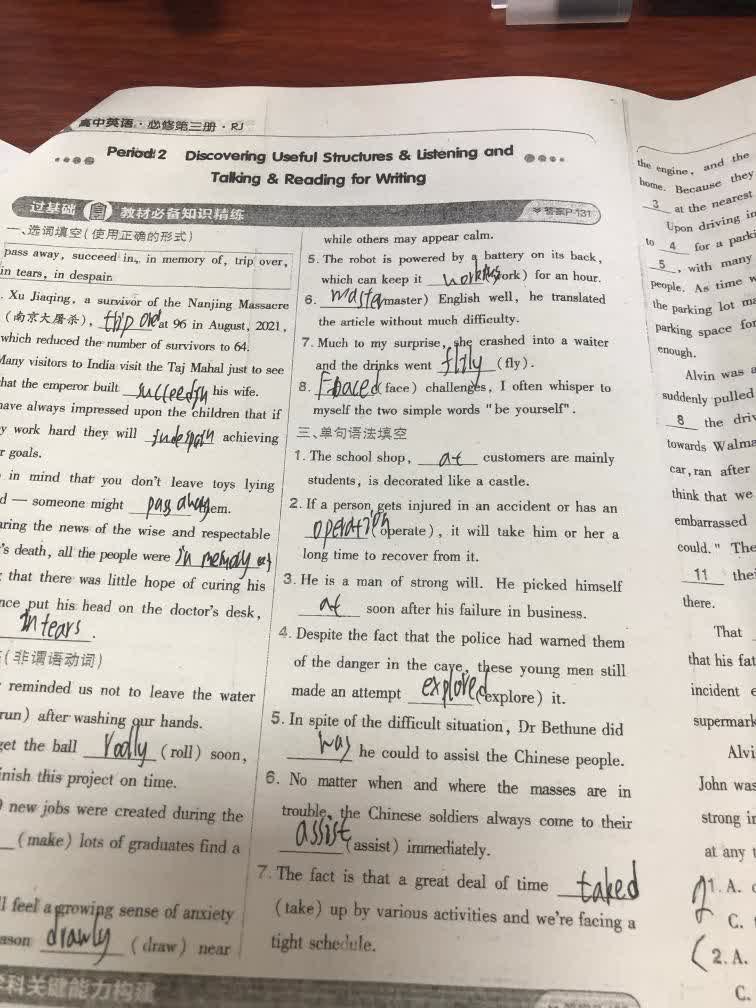 高中英语·必修第三册·RJ
Period 2 Discovering Useful Structures & Listening and
Talking & Reading for Writing
过基础 教材必备知识精练
答案P·131
一、选词填空(使用正确的形式)
pass away, succeed in, in memory of, trip over,
in tears, in despair
. Xu Jiaqing, a survivor of the Nanjing Massacre
(南京大屠杀), at 96 in August, 2021,
which reduced the number of survivors to 64.
Many visitors to India visit the Taj Mahal just to see
that the emperor built his wife.
have always impressed upon the children that if
y work hard they will achieving
r goals.
in mind that you don't leave toys lying
d — someone might pass away them.
aring the news of the wise and respectable
's death, all the people were in memory
that there was little hope of curing his
nce put his head on the doctor's desk,
in tears.
(非谓语动词)
reminded us not to leave the water
run) after washing our hands.
get the ball (roll) soon,
inish this project on time.
new jobs were created during the
(make) lots of graduates find a
ll feel a growing sense of anxiety
ason drawly (draw) near
学科关键能力构建
while others may appear calm.
5. The robot is powered by a battery on its back,
which can keep it (work) for an hour.
6. master (master) English well, he translated
the article without much difficulty.
7. Much to my surprise, she crashed into a waiter
and the drinks went (fly).
8. (face) challenges, I often whisper to
myself the two simple words "be yourself".
三、单句语法填空
1. The school shop, at customers are mainly
students, is decorated like a castle.
2. If a person gets injured in an accident or has an
operation (operate), it will take him or her a
long time to recover from it.
3. He is a man of strong will. He picked himself
at soon after his failure in business.
4. Despite the fact that the police had warned them
of the danger in the cave, these young men still
made an attempt explored (explore) it.
5. In spite of the difficult situation, Dr Bethune did
was he could to assist the Chinese people.
6. No matter when and where the masses are in
trouble, the Chinese soldiers always come to their
assist (assist) immediately.
7. The fact is that a great deal of time taked
(take) up by various activities and we're facing a
tight schedule.
the engine, and the
home. Because they
3 at the nearest
Upon driving in
to 4 for a parki
5, with many
people. As time w
the parking lot m
parking space for
enough.
Alvin was a
suddenly pulled
8 the driv
towards Walma
car, ran after
think that we
embarrassed
could." The
11 the
there.
That
that his fat
incident e
supermark
Alvi
John was
strong in
at any t
1. A.
C.
2. A.
C.